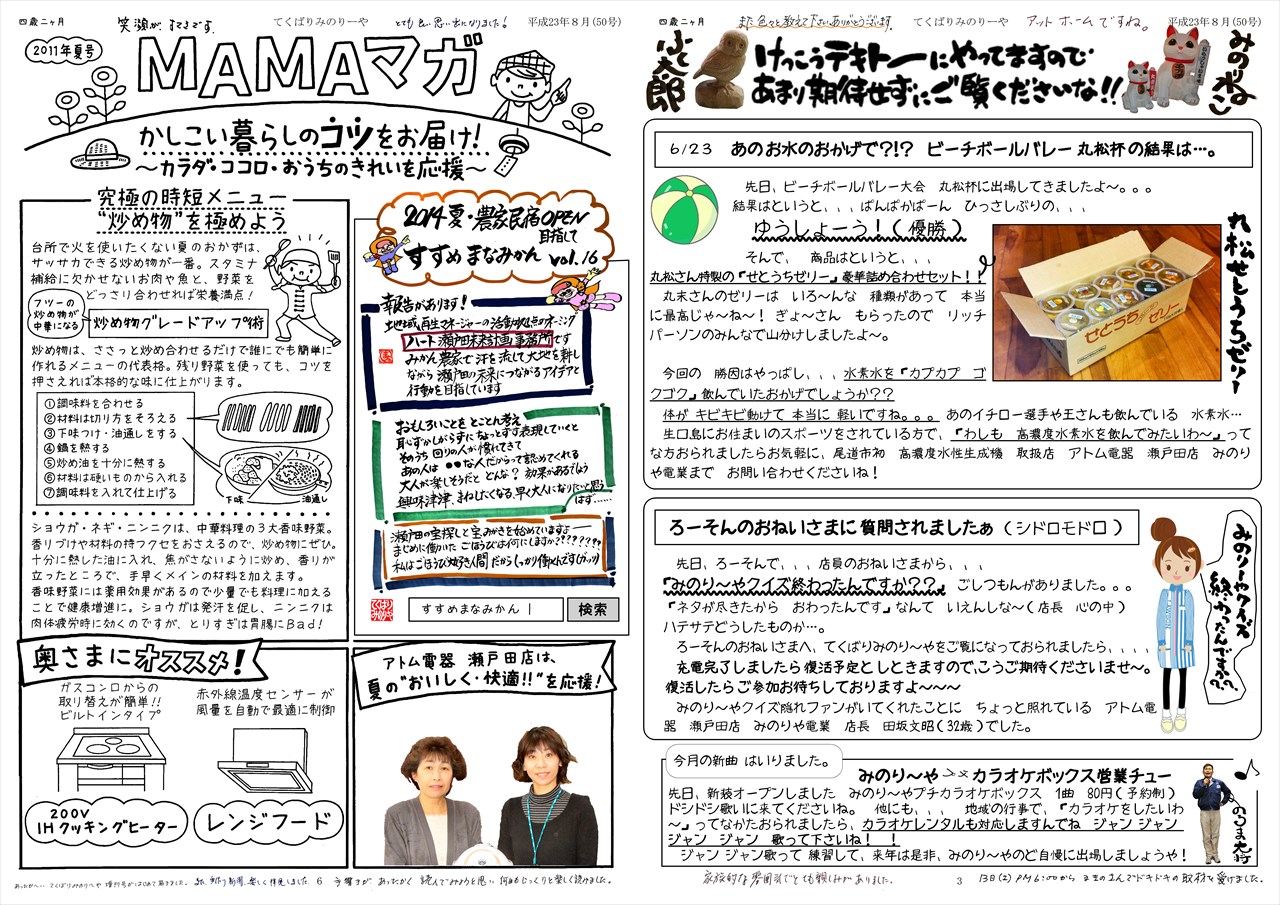 四歳二ヶ月
笑顔が、すてきです。
てくばりみのりーや
とても良い思い出になりました！
平成23年８月(50号)
2011年夏号
MAMAマガ
かしこい暮らしのコツをお届け！
〜カラダ・ココロ・おうちのきれいを応援〜
究極の時短メニュー
“炒め物”を極めよう
台所で火を使いたくない夏のおかずは、
サッサカできる炒め物が一番。スタミナ
補給に欠かせないお肉や魚と、野菜を
どっさり合わせれば栄養満点！
フツーの
炒め物が
中華になる
炒め物グレードアップ術
炒め物は、ささっと炒め合わせるだけで誰にでも簡単に
作れるメニューの代表格。残り野菜を使っても、コツを
押さえれば本格的な味に仕上がります。
①調味料を合わせる
②材料は切り方をそろえる
③下味つけ・油通しをする
④鍋を熱する
⑤炒め油を十分に熱する
⑥材料は硬いものから入れる
⑦調味料を入れて仕上げる
下味
油通し
ショウガ・ネギ・ニンニクは、中華料理の３大香味野菜。
香りづけや材料の持つクセをおさえるので、炒め物にぜひ。
十分に熱した油に入れ、焦がさないように炒め、香りが
立ったところで、手早くメインの材料を加えます。
香味野菜には薬用効果があるので少量でも料理に加える
ことで健康増進に。ショウガは発汗を促し、ニンニクは
肉体疲労時に効くのですが、とりすぎは胃腸にBad！
2014夏・農家民宿OPEN
目指して
すすめまなみかん vol.16
報告があります！
地域再生マネージャーの活動拠点ネーミング
ハート瀬戸田未来計画事務所です
みかん農家で汗を流して大地を耕し
ながら瀬戸田の未来につながるアイデアと
行動を目指しています
おもしろいことをとことん考え
恥ずかしがらずにちょっとずつ表現していくと
そのうち回りの人が慣れてきて
あの人は●●な人だからって認めてくれる
大人が楽しそうだとどんな？効果があるでしょう
興味津津、まねしたくなる、早く大人になりたいと思う
はず……
瀬戸田の宝探しと宝みがきを始めていますよ――
まじめに働いたごほうびは何にしますか？？？？？？？
私はごほうび大好き人間だからしっかり働くんです(グッ!!)
すすめまなみかん
検索
奥さまにオススメ！
ガスコンロからの
取り替えが簡単！！
ビルトインタイプ
赤外線温度センサーが
風量を自動で最適に制御
200V
IHクッキングヒーター
レンジフード
アトム電器 瀬戸田店は、
夏の“おいしく・快適！！”を応援！
6
四歳二ヶ月
また色々と教えて下さい。ありがとうございます。
てくばりみのりーや
アットホームですね。
平成23年８月(50号)
小太郎
けっこうテキトーにやってますので
あまり期待せずにご覧くださいな！！
みのりねこ
6/23 あのお水のおかげで？！？ ビーチボールバレー 丸松杯の結果は…。
先日、ビーチボールバレー大会 丸松杯に出場してきましたよ〜。。。
結果はというと、、、ぱんぱかぱーん ひっさしぶりの、、、
ゆうしょーう！（優勝）
そんで、 商品はというと、、、
丸松さん特製の『せとうちゼリー』豪華詰め合わせセット！！
丸末さんのゼリーは いろ〜んな 種類があって 本当
に最高じゃ〜ね〜！ ぎょ〜さん もらったので リッチ
パーソンのみんなで山分けしましたよ〜。
せとうち
ゼリー
丸松せとうちゼリー
今回の 勝因はやっぱし、、、水素水を『カプカプ ゴ
クゴク』飲んでいたおかげでしょうか？？
体が キビキビ動けて 本当に 軽いですね。。。あのイチロー選手や王さんも飲んでいる 水素水…
生口島にお住まいのスポーツをされている方で、『わしも 高濃度水素水を飲んでみたいわ〜』って
な方おられましたらお気軽に、尾道市初 高濃度水性生成機 取扱店 アトム電器 瀬戸田店 みのり
や電業まで お問い合わせくださいね！
ろーそんのおねいさまに質問されましたぁ（シドロモドロ）
先日、ろーそんで、、、店員のおねいさまから、、、
『みのり〜やクイズ終わったんですか？？』 ごしつもんがありました。。。
『ネタが尽きたから おわったんです』なんて いえんしな〜（店長 心の中）
ハテサテどうしたものか…。
ろーそんのおねいさまへ、てくばりみのり〜やをご覧になっておられましたら、、、、
充電完了しましたら復活予定としときますので、こうご期待くださいませ〜。
復活したらご参加お待ちしておりますよ〜〜〜
みのり〜やクイズ隠れファンがいてくれたことに ちょっと照れている アトム電
器 瀬戸田店 みのりや電業 店長 田坂文昭（32歳）でした。
みのり〜やクイズ
終わったんですか？？
今月の新曲 はいりました。
みのり〜や カラオケボックス営業チュー
先日、新装オープンしました みのり〜やプチカラオケボックス 1曲 80円（予約制）
ドシドシ歌いに来てくださいね。 他にも、、、 地域の行事で、『カラオケをしたいわ
〜』ってなかたおられましたら、カラオケレンタルも対応しますんでね ジャン ジャン
ジャン ジャン 歌って下さいね！ ！
ジャン ジャン歌って 練習して、来年は是非、みのり〜やのど自慢に出場しましょうや！
のうま大将
家族的な雰囲気でとても親しみがありました。
3